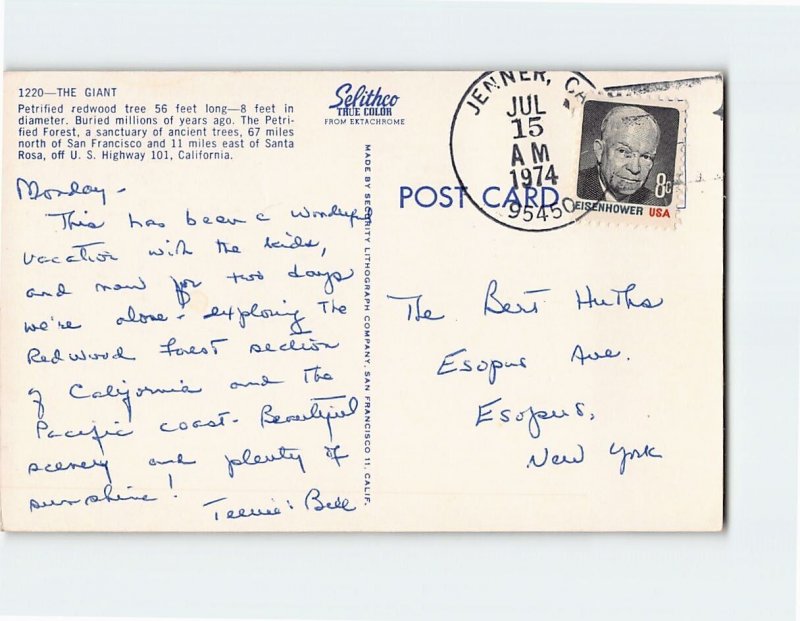 1220—THE GIANT
Petrified redwood tree 56 feet long—8 feet in
diameter. Buried millions of years ago. The Petri-
fied Forest, a sanctuary of ancient trees, 67 miles
north of San Francisco and 11 miles east of Santa
Rosa, off U. S. Highway 101, California.
Selithco
TRUE COLOR
FROM EKTACHROME
JENNER, CA
JUL
15
AM
1974
95450
8c
EISENHOWER USA
POST CARD
MADE BY SECURITY LITHOGRAPH COMPANY, SAN FRANCISCO 11, CALIF.
Monday -
This has been a wonderful
vacation with the kids,
and now for two days
we're alone - exploring the
Redwood Forest section
of California and the
Pacific coast. Beautiful
scenery and plenty of
sunshine!
Bill
The Bert Huths
Esopus Ave.
Esopus,
New York